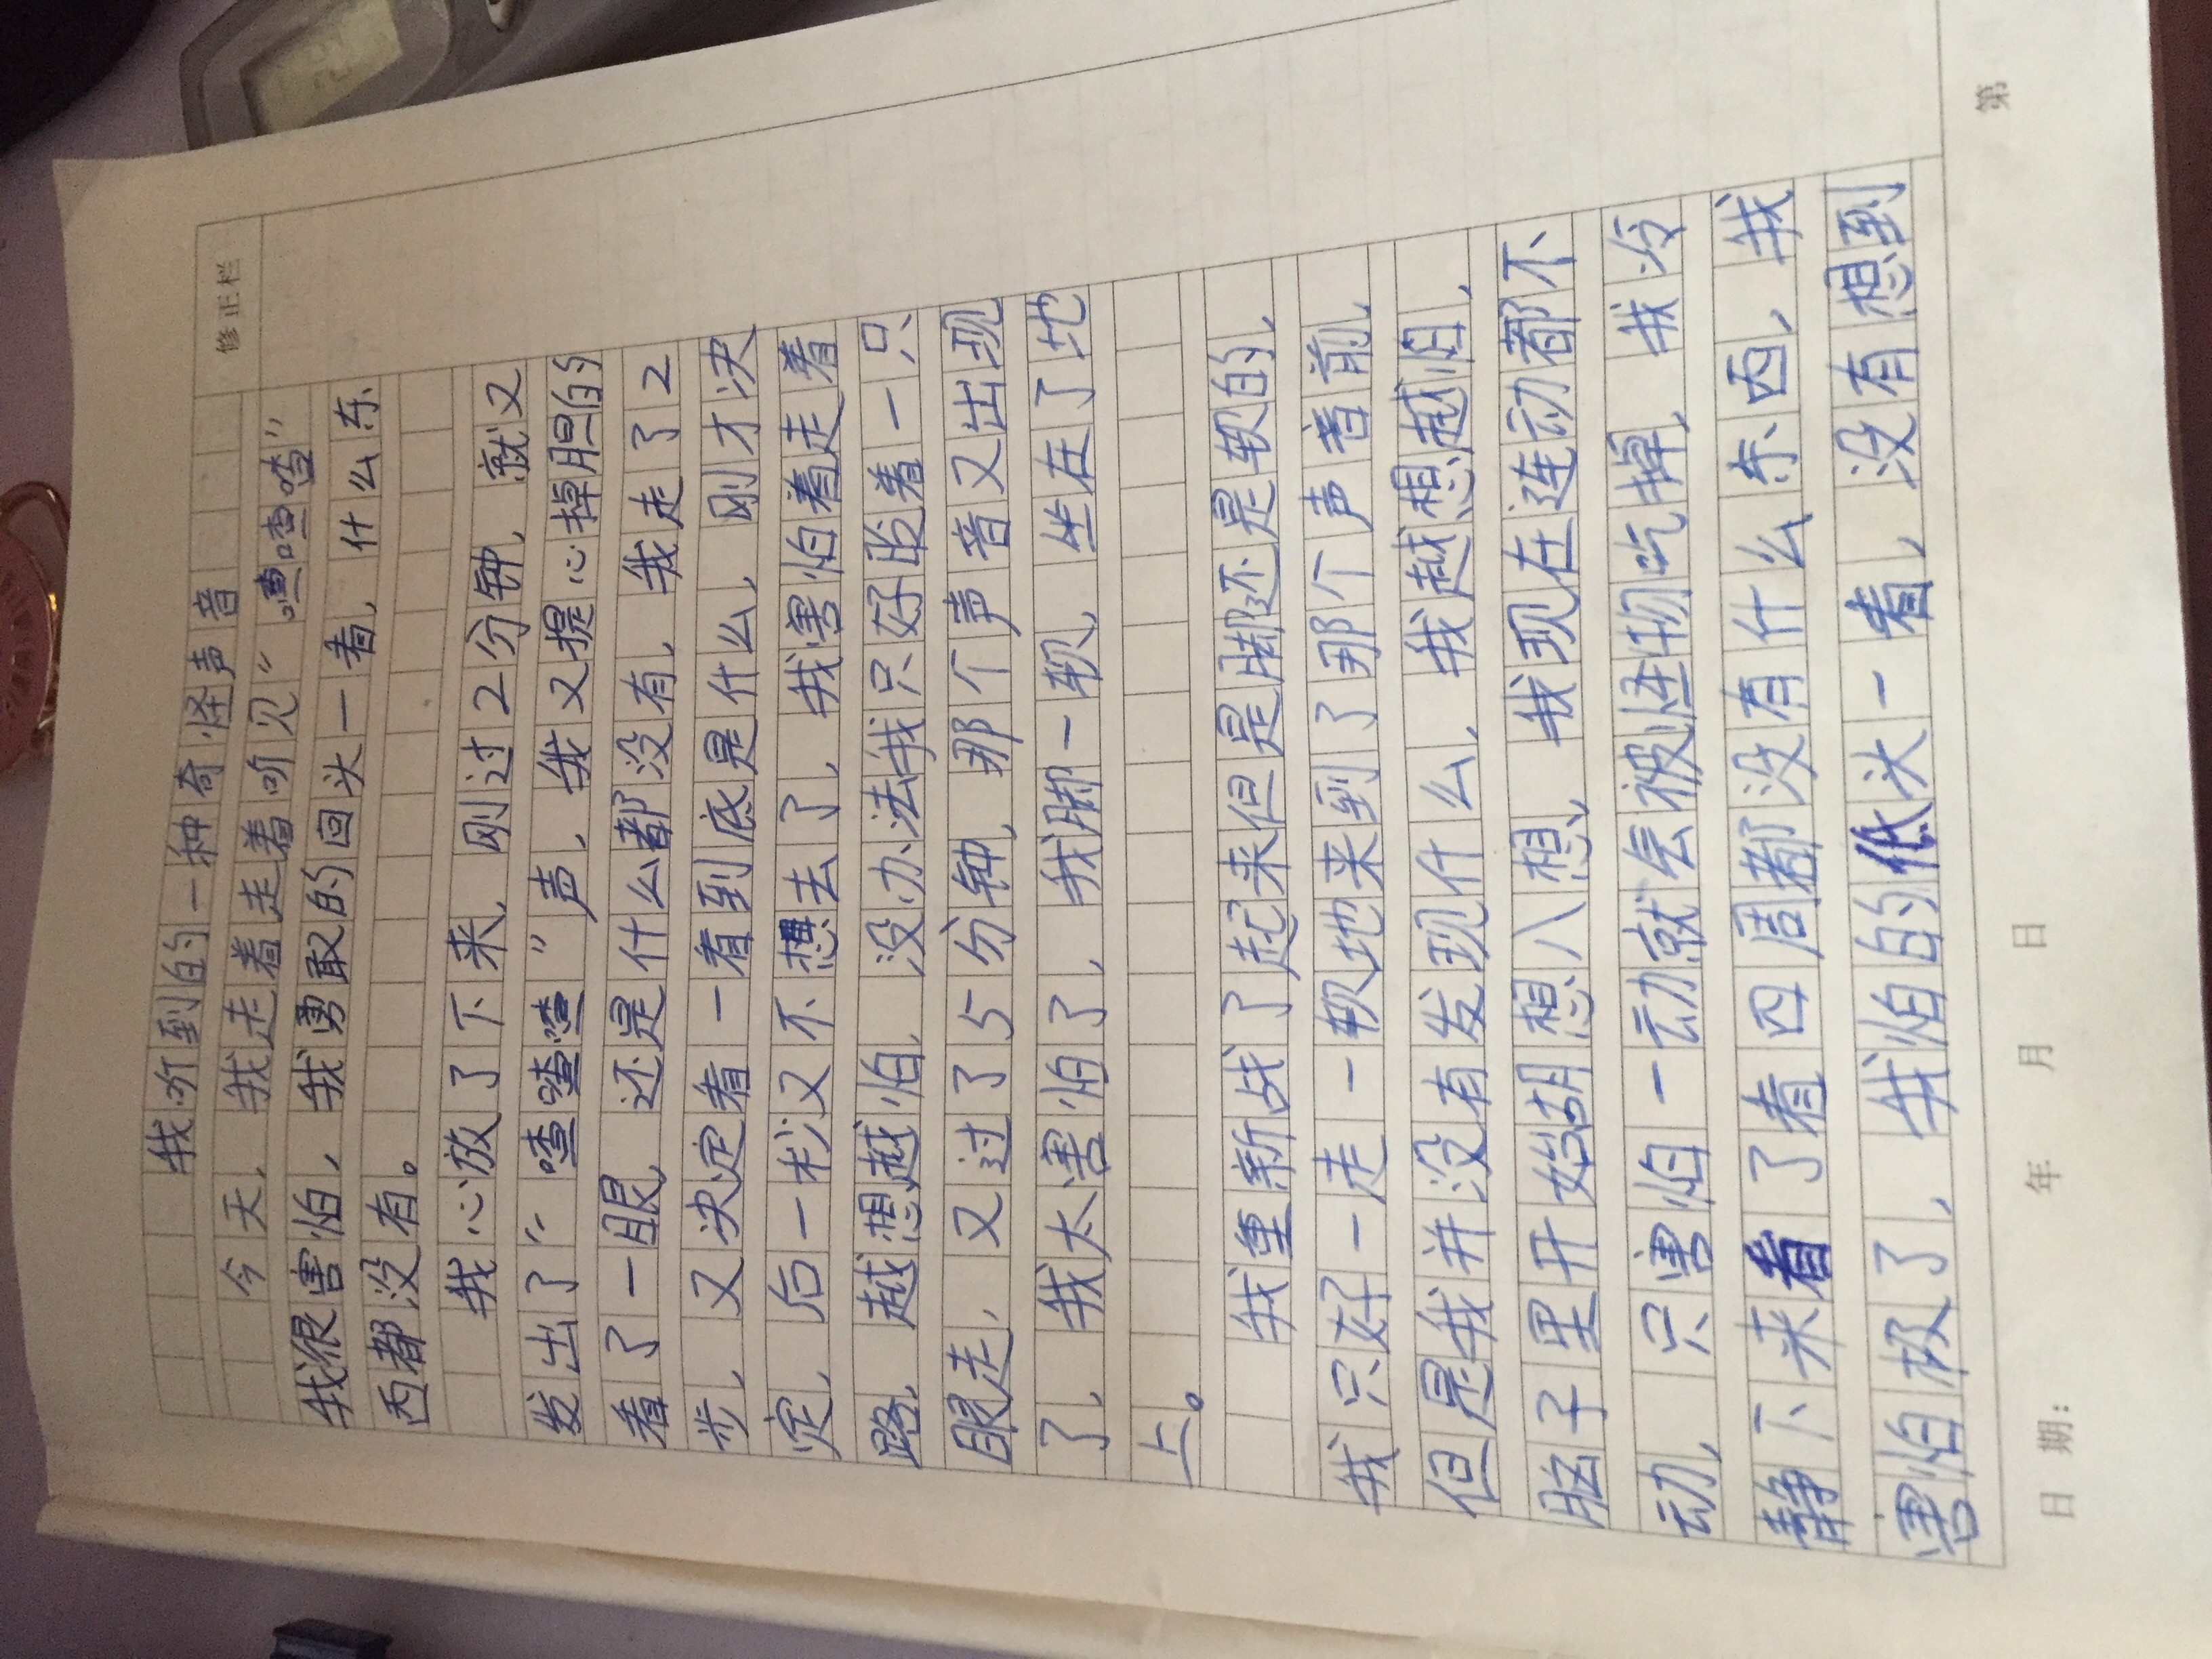 修正栏
我听到的一种奇怪声音
今天，我走着走着听见"喳喳喳"
我很害怕，我勇敢的回头一看，什么东
西都没有。
我心放了下来，刚过2分钟，就又
发出了"喳喳喳"声，我又提心掉胆的
看了一眼，还是什么都没有，我走了2
步，又决定看一看到底是什么，刚才决
定，后一秒又不想去了，我害怕着走着
路，越想越怕，没办法我只好眨着一只
眼走，又过了5分钟，那个声音又出现
了，我太害怕了，我脚一软，坐在了地
上。
我重新战了起来但是脚还是软的，
我只好一走一软地来到了那个声音前，
但是我并没有发现什么，我越想越怕，
脑子里开始胡想八想，我现在连动都不
动，只害怕一动就会被怪物吃掉，我冷
静下来看了看四周都没有什么东西，我
害怕极了，我怕的低头一看，没有想到
日期: 年 月 日 第